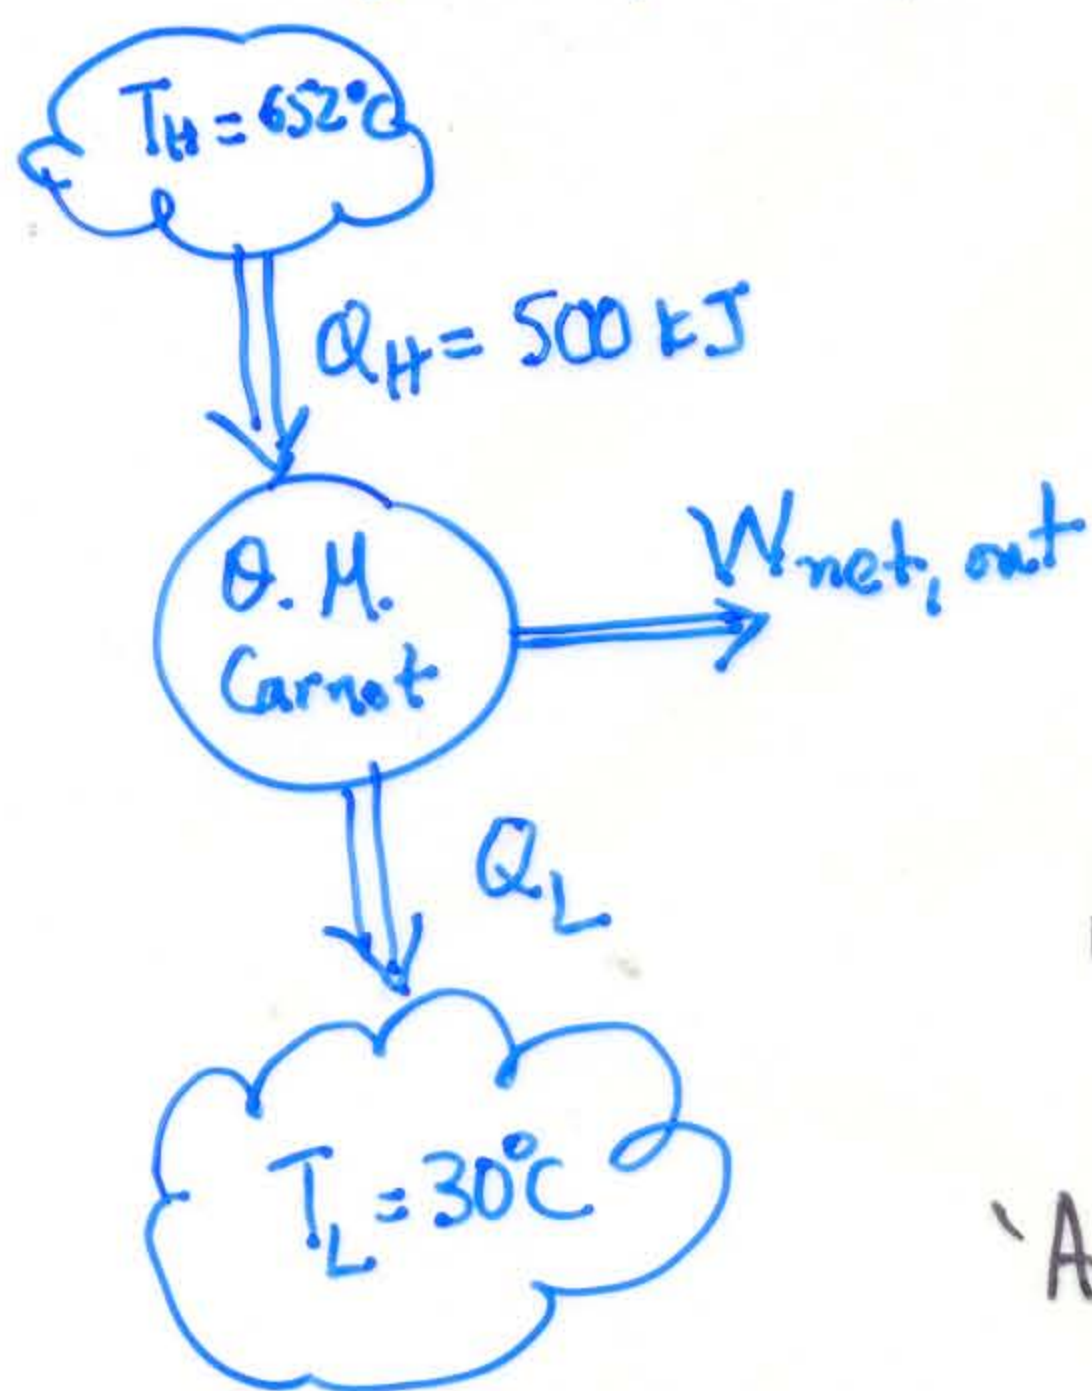 T_H = 652°C
Q_H = 500 kJ
Θ. Μ.
Carnot
W_net, out
Q_L
T_L = 30°C